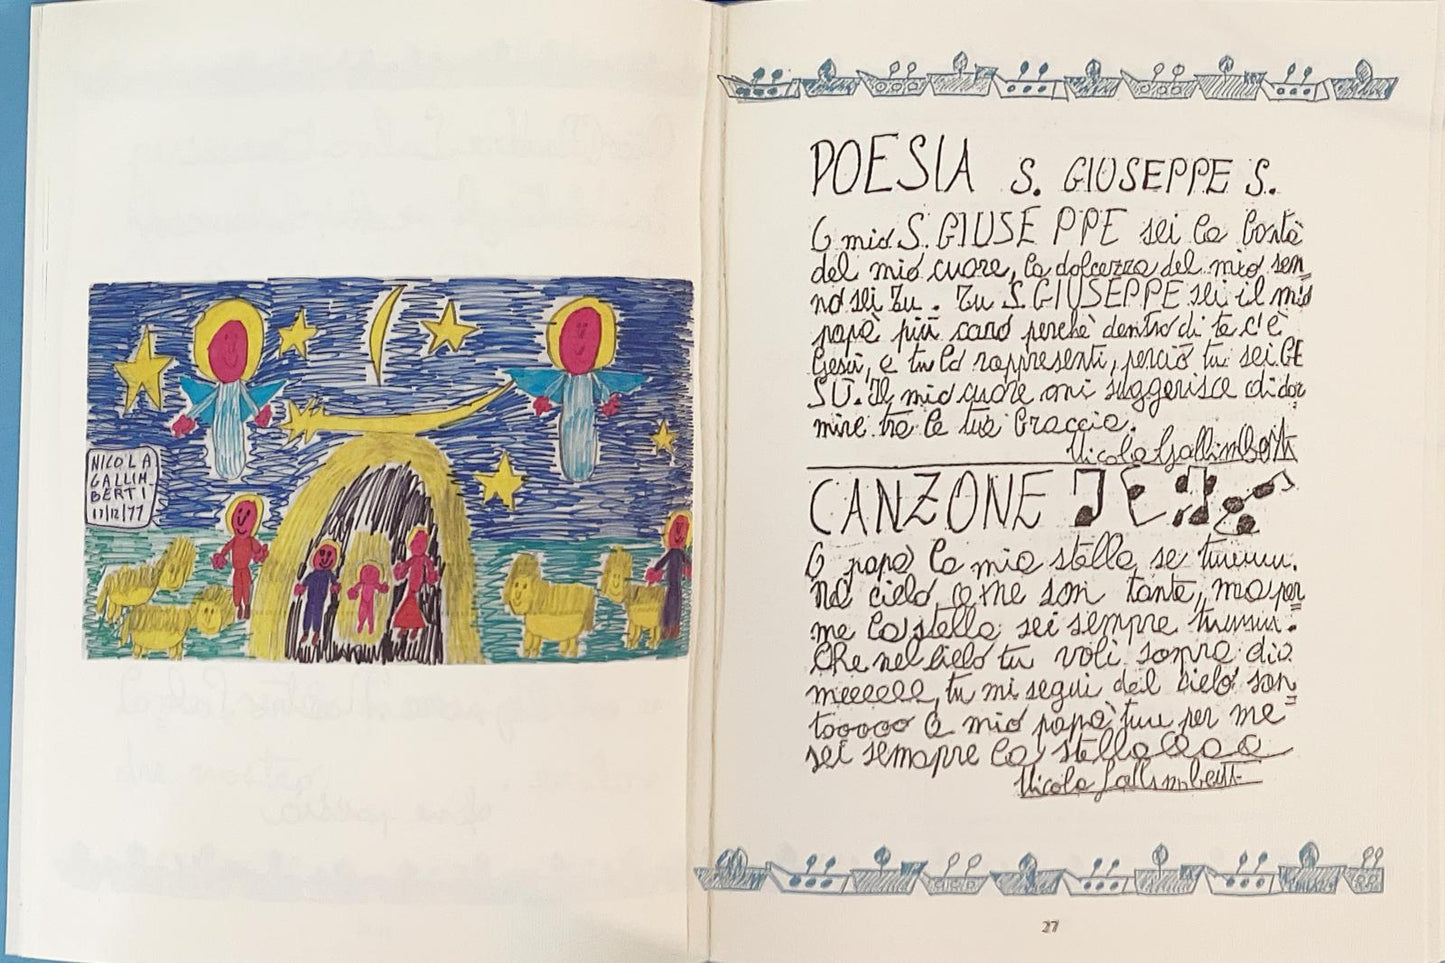 NICOLA
GALLIM-
BERTI
17/12/77
POESIA S. GIUSEPPE S.
O mio S. GIUSEPPE sei la bontà
del mio cuore, la dolcezza del mio son
no sei tu. Tu S. GIUSEPPE sei il mio
papà più caro perchè dentro di te c'è
Gesù, e tu lo rappresenti, perciò tu sei GE
SÙ. Il mio cuore mi suggerisce di dor
mire tra le tue braccia.
Nicola Gallimberti
CANZONE
O papà la mia stella se tuuuuu.
nel cielo ce ne son tante, ma per=
me la stella sei sempre tuuuuu.
Che nel cielo tu voli sopra di
meeeeee, tu mi segui dal cielo san=
tooooo O mio papà tuu per me
sei sempre la stellaaaaa
Nicola Gallimberti
27